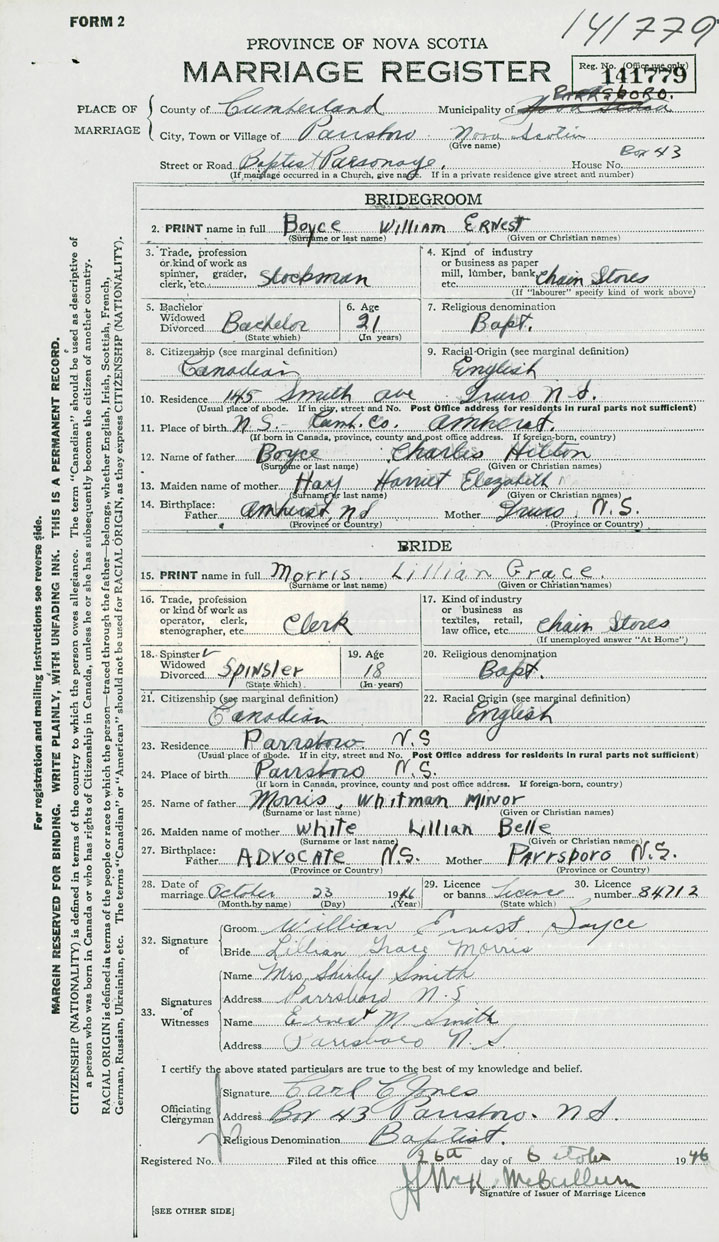 FORM 2
141779
PROVINCE OF NOVA SCOTIA
MARRIAGE REGISTER
Reg. No. (Office use only)
141779
PLACE OF MARRIAGE
County of Cumberland Municipality of Parrsboro.
City, Town or Village of Parrsboro Nova Scotia
(Give name)
Street or Road Baptist Parsonage, House No. Box 43
(If marriage occurred in a Church, give name. If in a private residence give street and number)
BRIDEGROOM
2. PRINT name in full Boyce William Ernest
(Surname or last name) (Given or Christian names)
3. Trade, profession or kind of work as spinner, grader, clerk, etc. Stockman
4. Kind of industry or business as paper mill, lumber, bank, etc. Chain Stores
(If "labourer" specify kind of work above)
5. Bachelor Widowed Divorced Bachelor
(State which)
6. Age 21
(In years)
7. Religious denomination Bapt.
8. Citizenship (see marginal definition) Canadian
9. Racial Origin (see marginal definition) English
10. Residence 145 Smith ave Truro N.S.
(Usual place of abode. If in city, street and No. Post Office address for residents in rural parts not sufficient)
11. Place of birth N.S. Cumb. Co. Amherst.
(If born in Canada, province, county and post office address. If foreign-born, country)
12. Name of father Boyce Charles Hilton
(Surname or last name) (Given or Christian names)
13. Maiden name of mother Hay Harriet Elezabith
(Surname or last name) (Given or Christian names)
14. Birthplace: Father Amherst, N.S Mother Truro N.S.
(Province or Country) (Province or Country)
BRIDE
15. PRINT name in full Morris Lillian Grace.
(Surname or last name) (Given or Christian names)
16. Trade, profession or kind of work as operator, clerk, stenographer, etc. Clerk
17. Kind of industry or business as textiles, retail, law office, etc. Chain Stores
(If unemployed answer "At Home")
18. Spinster Widowed Divorced Spinster
(State which)
19. Age 18
(In years)
20. Religious denomination Bapt.
21. Citizenship (see marginal definition) Canadian
22. Racial Origin (see marginal definition) English
23. Residence Parrsboro N.S
(Usual place of abode. If in city, street and No. Post Office address for residents in rural parts not sufficient)
24. Place of birth Parrsboro N.S.
(If born in Canada, province, county and post office address. If foreign-born, country)
25. Name of father Morris, Whitman Minor
(Surname or last name) (Given or Christian names)
26. Maiden name of mother White Lillian Belle
(Surname or last name) (Given or Christian names)
27. Birthplace: Father ADVOCATE N.S. Mother Parrsboro N.S.
(Province or Country) (Province or Country)
28. Date of marriage October 23 1946
(Month by name) (Day) (Year)
29. Licence or banns Licence
(State which)
30. Licence number 84712
32. Signature of
Groom William Ernest Boyce
Bride Lillian Grace Morris
33. Signatures of Witnesses
Name Mrs. Shirley Smith
Address Parrsboro N.S
Name Ernest M Smith
Address Parrsboro N.S
I certify the above stated particulars are true to the best of my knowledge and belief.
Officiating Clergyman
Signature Carl C Jones
Address Box 43 Parrsboro. N.S.
Religious Denomination Baptist.
Registered No. Filed at this office 26th day of October 1946
McCullum
Signature of Issuer of Marriage Licence
[SEE OTHER SIDE]
For registration and mailing instructions see reverse side.
MARGIN RESERVED FOR BINDING. WRITE PLAINLY, WITH UNFADING INK. THIS IS A PERMANENT RECORD.
CITIZENSHIP (NATIONALITY) is defined in terms of the country to which the person owes allegiance. The term "Canadian" should be used as descriptive of
a person who was born in Canada or who has rights of Citizenship in Canada, unless he or she has subsequently become the citizen of another country.
RACIAL ORIGIN is defined in terms of the people or race to which the person—traced through the father—belongs, whether English, Irish, Scottish, French,
German, Russian, Ukrainian, etc. The terms "Canadian" or "American" should not be used for RACIAL ORIGIN, as they express CITIZENSHIP (NATIONALITY).